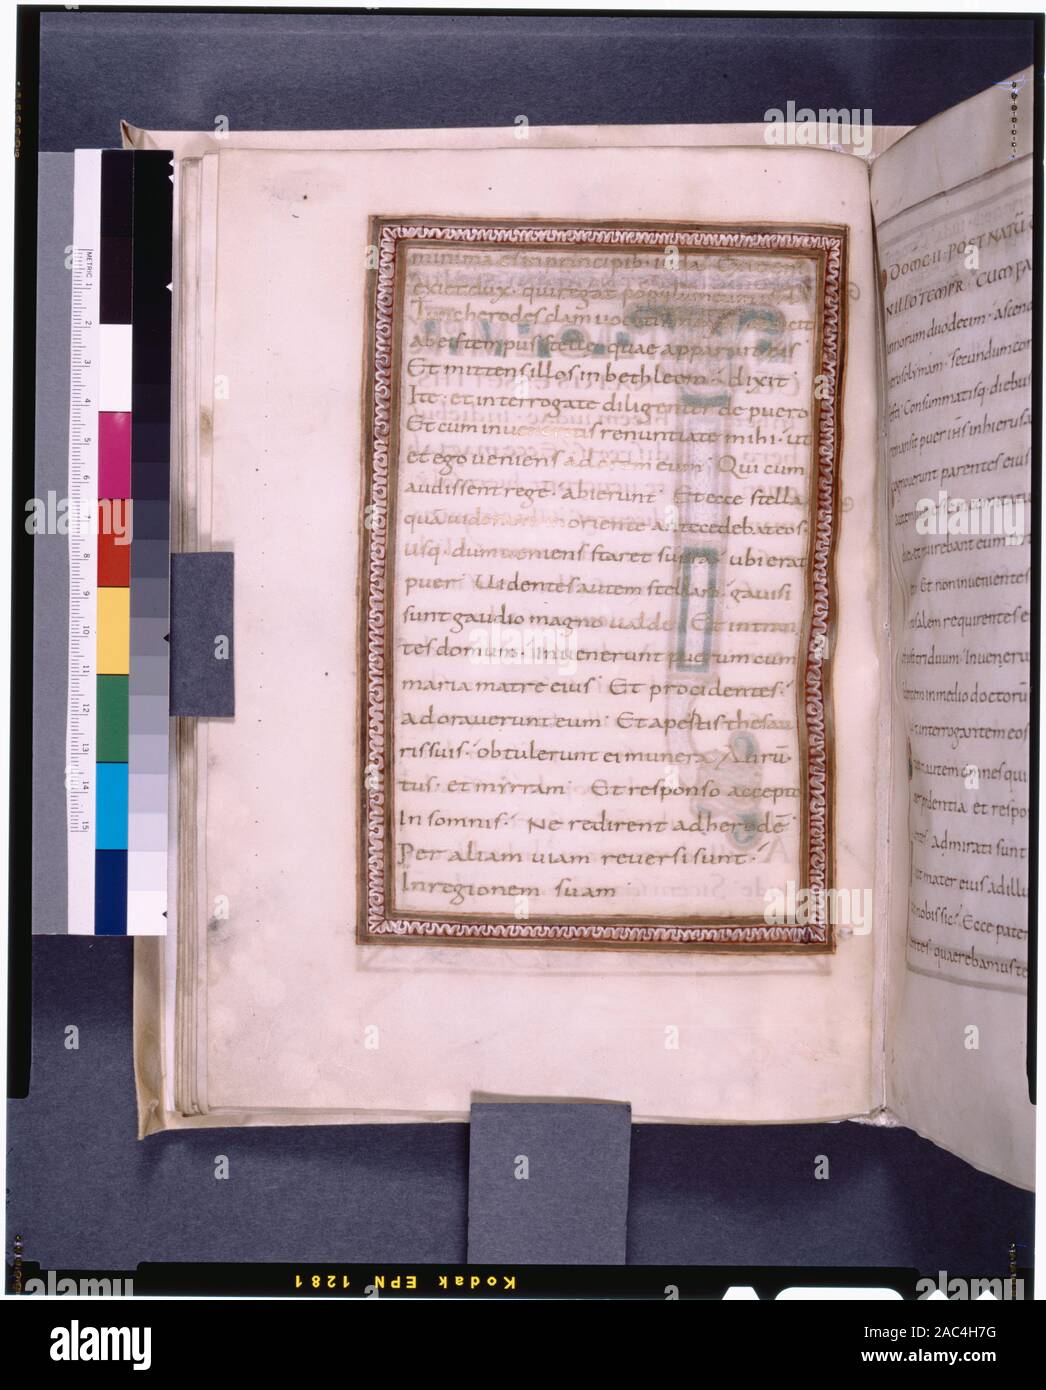 minima es in principib· iuda· Ex te enī
exiet dux· qui regat populum
Tunc herodes clam
ab eis tempus stellę quae apparuit eis
Et mittens illos in bethleem· dixit·
Ite· et interrogate diligenter de puero
Et cum inveneritis renuntiate mihi· ut
et ego veniens adorem eum· Qui cum
audissent regē· abierunt· Et ecce stella
quā viderant in oriente antecedebat eos·
usq· dum veniens staret supra· ubi erat
puer· Videntes autem stellam· gavisi
sunt gaudio magno valde· Et intran
tes domum· invenerunt puerum cum
maria matre eius· Et procidentes·
adoraverunt eum· Et apertis thesau
ris suis· obtulerunt ei munera· Aurū·
tus· et mirram· Et responso accepto
In somnis· Ne redirent ad herodē·
Per aliam viam reversi sunt·
In regionem suam
DOM II· POST NATŪ
IN ILLO TEMPR· CUM FA
annorum duodecim· ascen
ierosolymam· secundum con
festi· Consummatisq· diebus
remansit puer iħs in hierusa
cognoverunt parentes eius
Et non invenientes
salem requirentes e
triduum· Inveneru
in medio doctorū
interrogantem eos
autem omnes qui
prudentia et respon
Admirati sunt
mater eius ad illu
nobis sic· Ecce pater
quaerebamus te
METRIC 1 2 3 4 5 6 7 8 9 10 11 12 13 14 15
Kodak EPN 1281
alamy
a
alamy
Image ID: 2AC4H7G
www.alamy.com